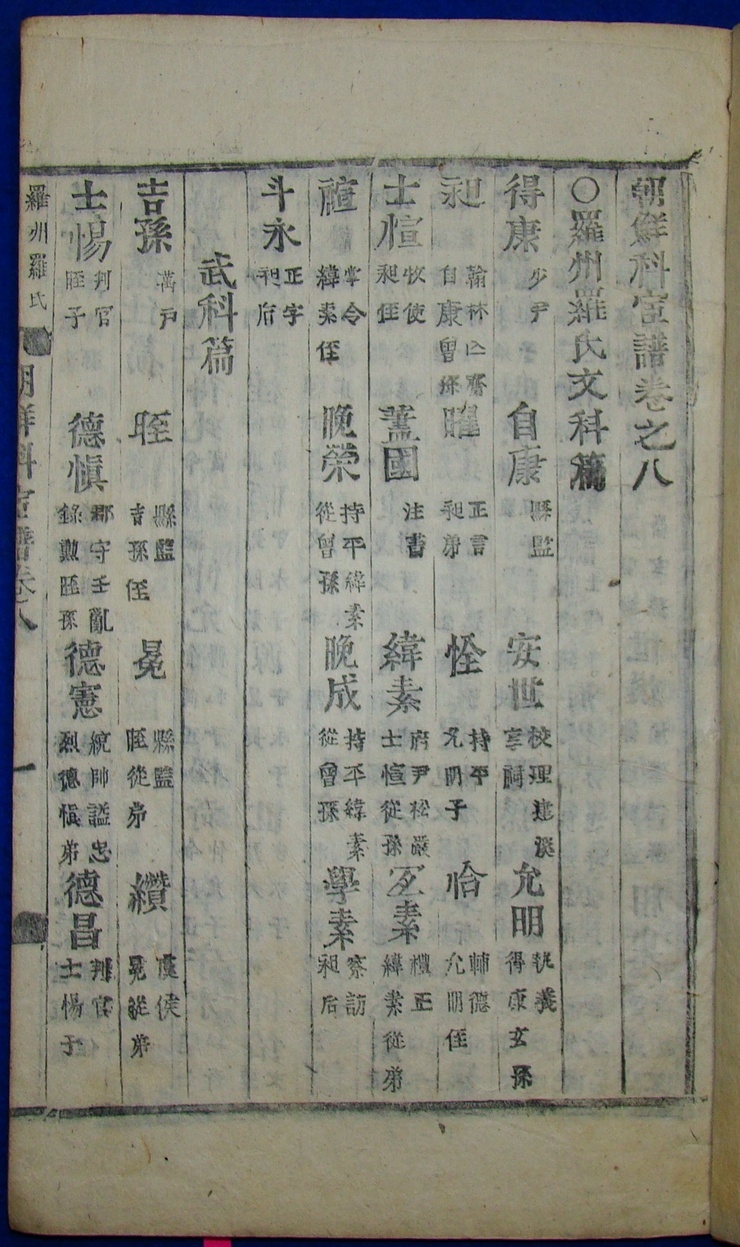 朝鮮科宦譜卷之八
○羅州羅氏文科篇
得康 少尹 自康 縣監 安世 校理建溪 享祠 允明 執義 得康玄孫
昶 翰林 自康曾孫 曜 正言 昶弟 怪 持平 允明子 恰 輔德 允明侄
士愃 牧使 昶侄 藎國 注書 緯素 府尹松巖 士愃從孫 宖素 禮正 緯素從弟
䄠 掌令 緯素侄 晚榮 持平緯素 從曾孫 晚成 持平緯素 從曾孫 學素 察訪 昶后
斗永 正字 昶后
武科篇
吉孫 萬戶 晊 縣監 吉孫侄 冕 縣監 晊從弟 纘 虞侯 冕從弟
士惕 判官 晊子 德愼 郡守壬亂 錄勲晊孫 德憲 統帥謚忠 烈德愼弟 德昌 判官 士惕子
羅州羅氏 朝鮮科宦譜卷八 一